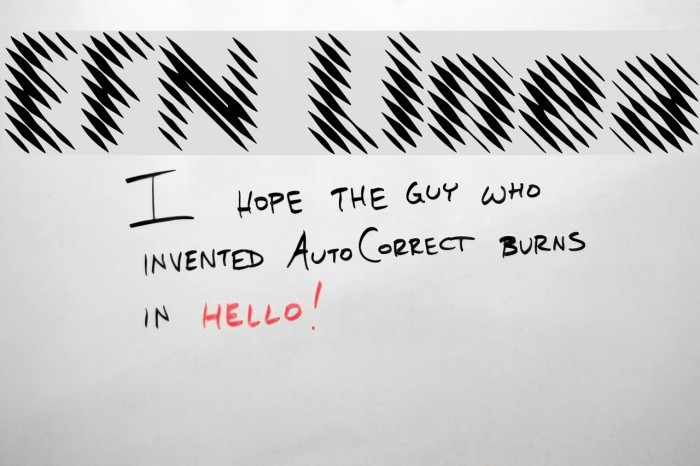 EFN Lines
I HOPE THE GUY WHO
INVENTED AUTOCORRECT BURNS
IN HELLO!